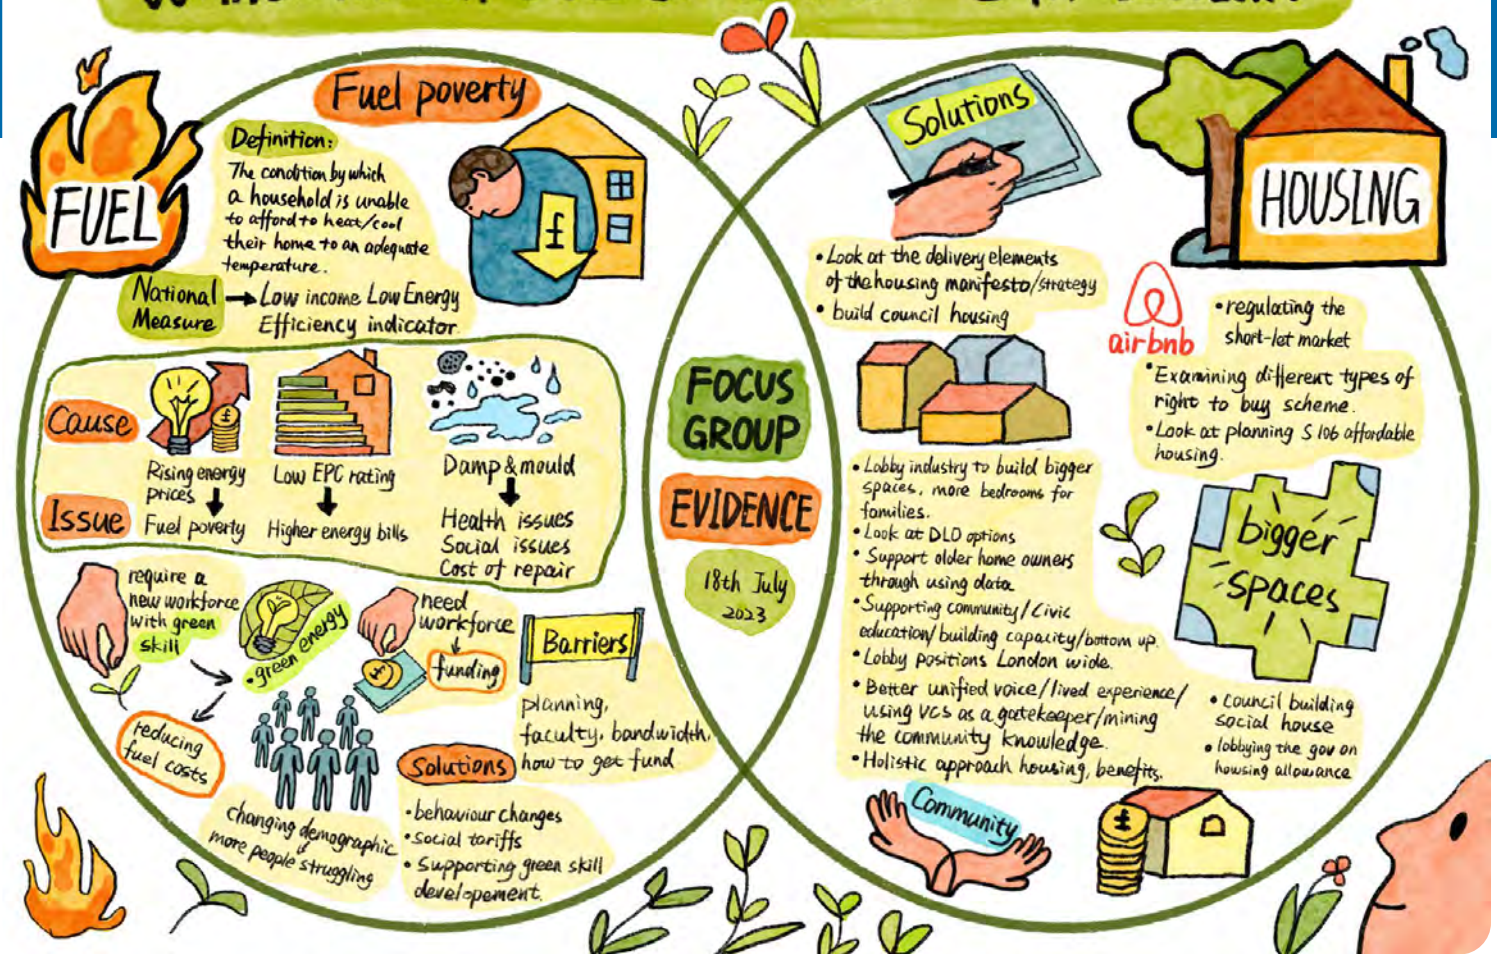 Fuel poverty
FUEL
Definition:
The condition by which
a household is unable
to afford to heat/cool
their home to an adequate
temperature.
£
National
Measure
Low income Low Energy
Efficiency indicator
Cause
£
Rising energy
prices
Low EPC rating
Damp & mould
Issue
Fuel poverty
Higher energy bills
Health issues
Social issues
Cost of repair
require a
new workforce
with green
skill
• green energy
reducing
fuel costs
need
workforce
funding
£
Barriers
planning,
faculty, bandwidth,
how to get fund
changing demographic
more people struggling
Solutions
• behaviour changes
• Social tariffs
• Supporting green skill
developement.
FOCUS
GROUP
EVIDENCE
18th July
2023
Solutions
HOUSING
• Look at the delivery elements
of the housing manifesto/strategy
• build council housing
airbnb
• regulating the
short-let market
• Examining different types of
right to buy scheme.
• Look at planning S 106 affordable
housing.
• Lobby industry to build bigger
spaces, more bedrooms for
families.
• Look at DLO options
• Support older home owners
through using data
• Supporting community/Civic
education/building capacity/bottom up.
• Lobby positions London wide.
• Better unified voice/lived experience/
using VCS as a gatekeeper/mining
the community knowledge.
• Holistic approach housing, benefits.
bigger
spaces
• council building
social house
• lobbying the gov on
housing allowance
Community
£